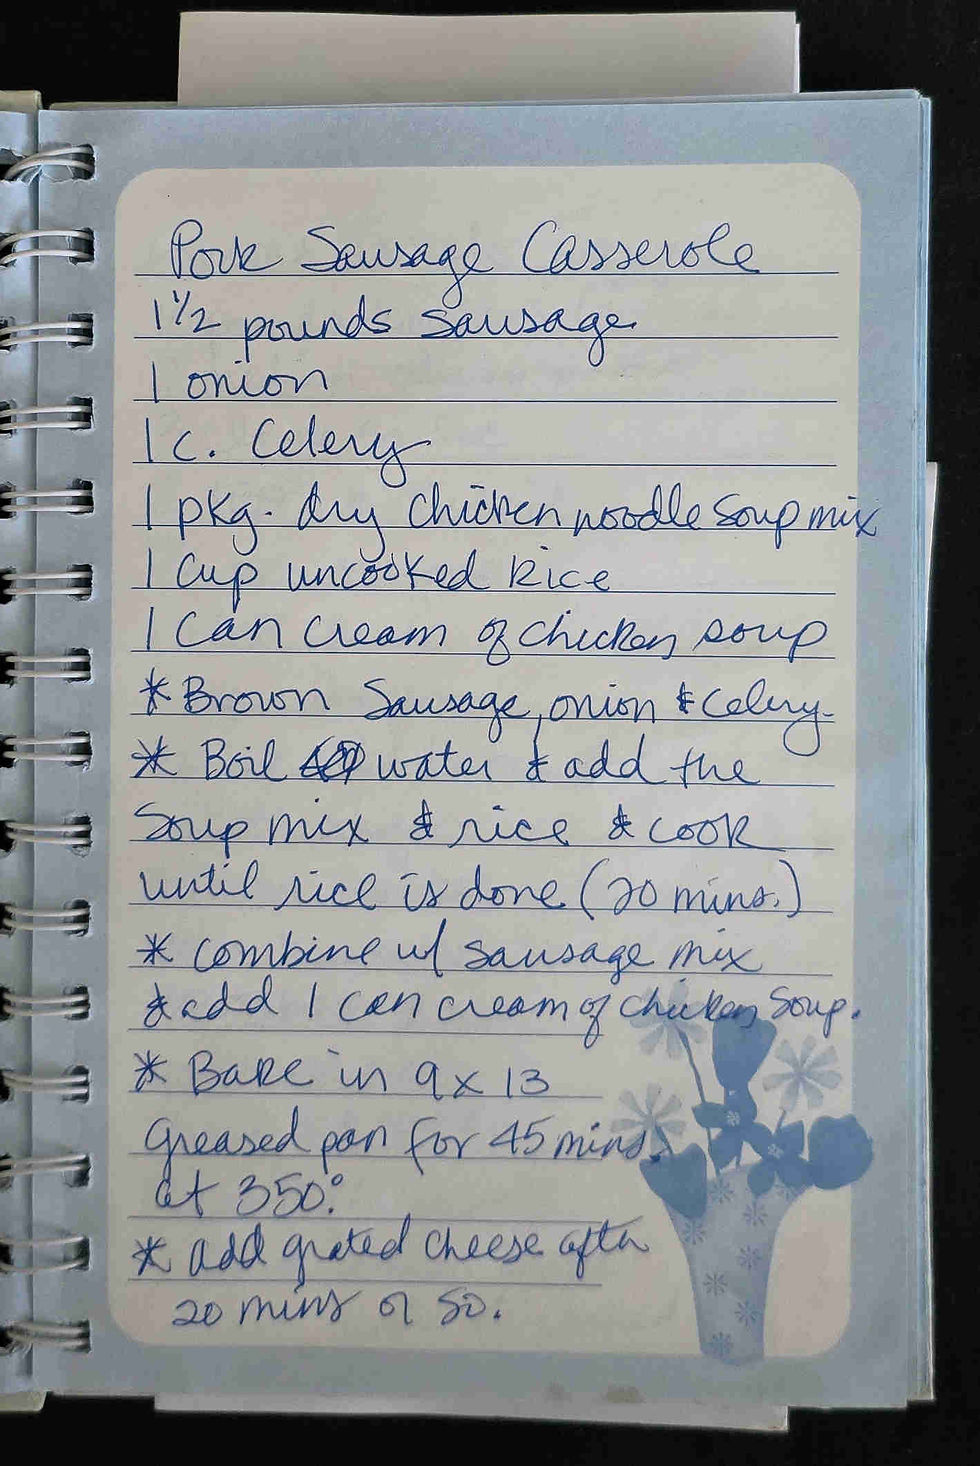 Pork Sausage Casserole
1 1/2 pounds sausage
1 onion
1 c. Celery
1 pkg. dry chicken noodle soup mix
1 Cup uncooked Rice
1 Can cream of chicken soup
* Brown Sausage, onion & Celery
* Boil water & add the
Soup mix & rice & cook
until rice is done (20 mins.)
* combine w/ sausage mix
& add 1 can cream of chicken Soup.
* Bake in 9 x 13
greased pan for 45 mins.
at 350°.
* add grated cheese after
20 mins or so.